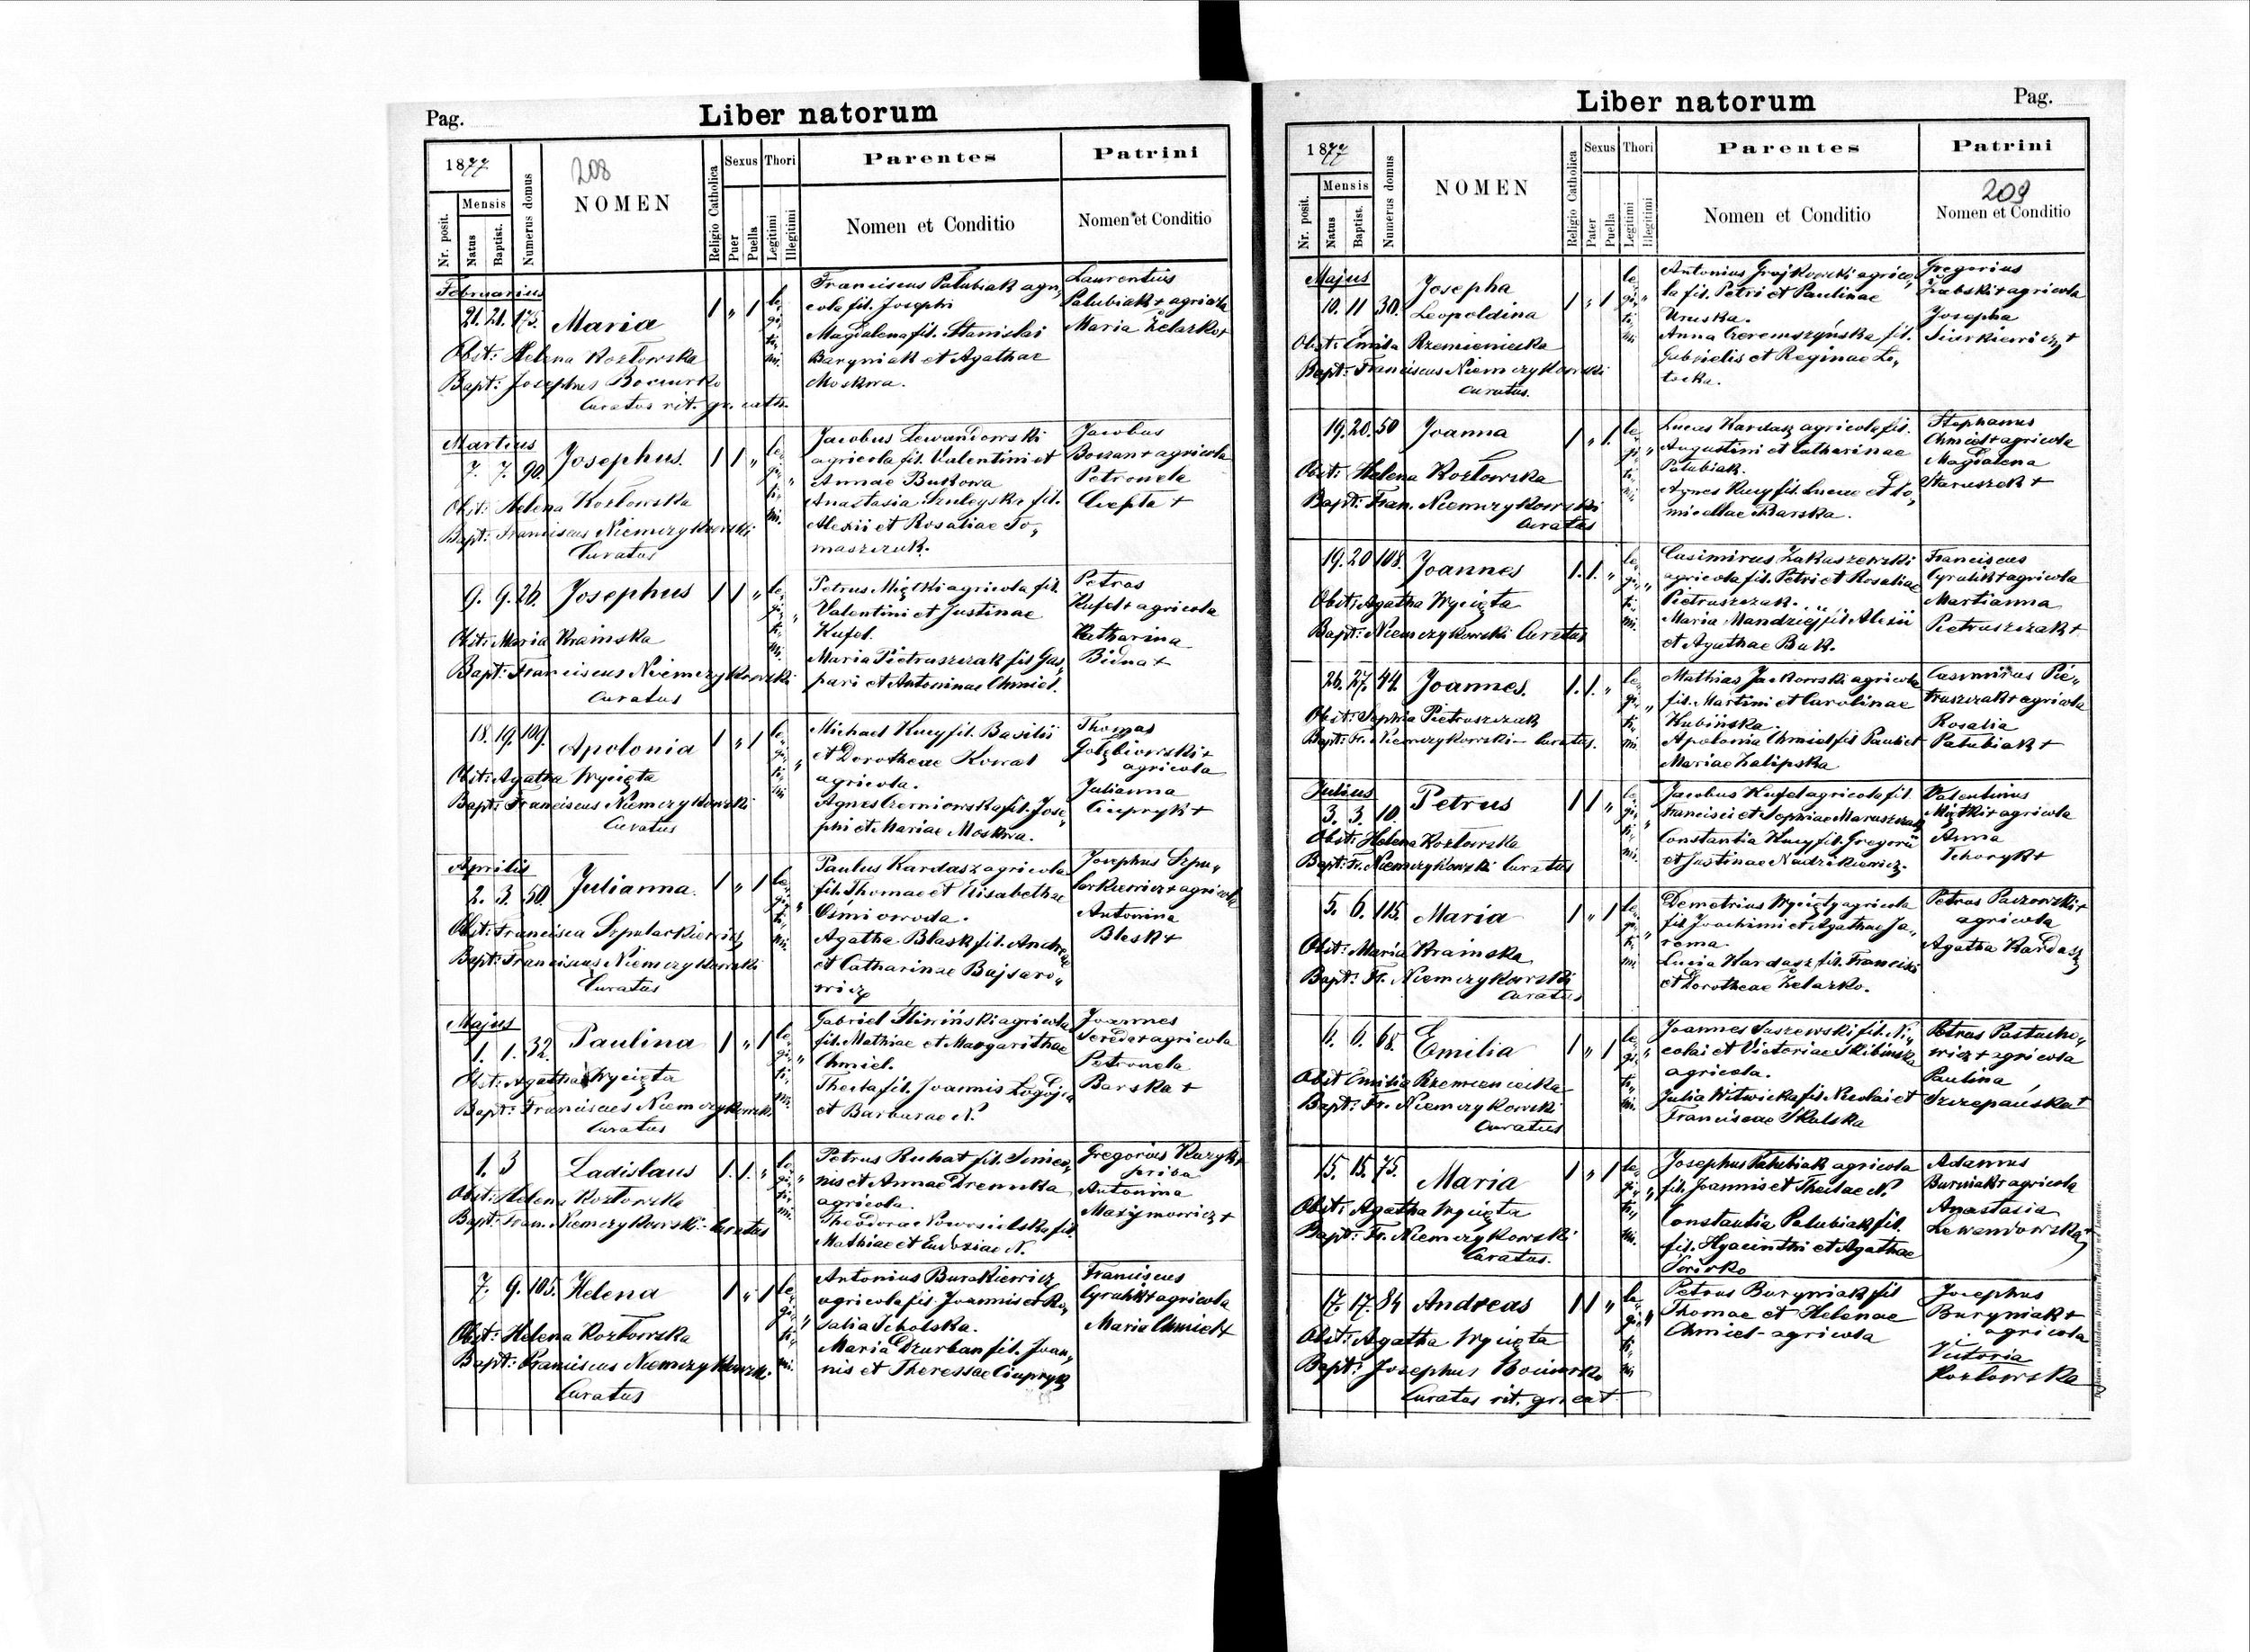 Pag.
Liber natorum
1877
208
Nr. posit.
Mensis
Natus
Baptist.
Numerus domus
NOMEN
Religio Catholica
Sexus
Puer
Puella
Thori
Legitimi
Illegitimi
Parentes
Nomen et Conditio
Patrini
Nomen et Conditio
Februarius
21. 21. 175. Maria 1 „ 1 le„
gi„
ti„
mi.
Obst: Helena Kozłowska
Bapt: Josephus Bociurko
Curatus rit. gr. cath.
Franciscus Palubiak agri„
cola fil. Josephi
Magdalena fil. Stanislai
Baryniak et Agathae
Moskwa.
Laurentius
Palubiak + agricola
Maria Żelazko +
Martius
7. 7. 90. Josephus. 1 1 „ le„
gi„ „
ti„
mi.
Obst: Helena Kozłowska
Bapt: Franciscus Niemczykowski
Curatus
Jacobus Lewandowski
agricola fil. Valentini et
Annae Bukowa
Anastasia fil.
Alexii et Rosaliae To„
maszczuk.
Jacobus
Boczan + agricola
Petronela
Ciepla +
9. 9. 26. Josephus 1 1 „ le„
gi„ „
ti„
mi.
Obst: Maria Krainska
Bapt: Franciscus Niemczykowski
Curatus
Petrus Miętki agricola fil.
Valentini et Justinae
Kufel.
Maria Pietraszczak fil Gas„
pari et Antoninae Chmiel.
Petrus
Kufel + agricola
Katharina
Bidna +
18. 19. 109. Apolonia 1 „ 1 le„
gi„ „
ti„
mi
Obst: Agatha Wycięta
Bapt: Franciscus Niemczykowski
Curatus
Michael Kucy fil. Basilii
et Dorotheae Kowal
agricola.
Agnes Czerniowska fil. Jose„
phi et Mariae Moskwa.
Thomas
Gołębiowski +
agricola
Julianna
Ciupryk +
Aprilis
2. 3. 50. Julianna. 1 „ 1 le„
gi„ „
ti„
mi.
Obst: Francisca Szpularkiewicz
Bapt: Franciscus Niemczykowski
Curatus
Paulus Kardasz agricola
fil. Thomae et Elisabethae
Ośmiowoda.
Agatha Blask fil. Andreae
et Catharinae Bajsaro„
wicz
Josephus Szpu„
larkiewicz + agricola
Antonina
Blask +
Majus
1. 1. 32. Paulina 1 „ 1 le„
gi„ „
ti„
mi.
Obst: Agatha Wycięta
Bapt: Franciscus Niemczykowski
Curatus
Gabriel Sliwiński agricola
fil. Mathiae et Margarithae
Chmiel.
Thecla fil. Joannis Łogoja
et Barbarae N.
Joannes
Sereda + agricola
Petronela
Barska +
1. 3 Ladislaus 1. 1. „ le„
gi„ „
ti„
mi.
Obst: Helena Kozłowska
Bapt: Fran. Niemczykowski - Curatus
Petrus Ruhat fil. Simeo„
nis et Annae Drenuka
agricola.
Theodora Nowosielska fil.
Mathiae et Eudoxiae N.
Gregorius Kuzyk +
Antonina
Maxymowicz +
7. 9. 105. Helena 1 „ 1 le„
gi„ „
ti„
mi.
Obst: Helena Kozłowska
Bapt: Franciscus Niemczykowski
Curatus
Antonius Burakiewicz
agricola fil. Joannis et Ro„
salia Scholska.
Maria Dzurban fil. Joan„
nis et Theressae Ciupryk
Franciscus
Cyrulik + agricola
Maria Chmiel +
Liber natorum
Pag.
1877
209
Nr. posit.
Mensis
Natus
Baptist.
Numerus domus
NOMEN
Religio Catholica
Sexus
Pater
Puella
Thori
Legitimi
Illegitimi
Parentes
Nomen et Conditio
Patrini
Nomen et Conditio
Majus
10. 11 30. Josepha
Leopoldina 1 „ 1 le„
gi„ „
ti„
mi
Obst: Emilia Rzemieniecka
Bapt: Franciscus Niemczykowski
Curatus.
Antonius Grajkowski agrico„
la fil. Petri et Paulinae
Uruska.
Anna Czeremszyńska fil.
Gabrielis et Reginae Ło„
tocka.
Gregorius
Ząbski + agricola
Josepha
Siurkiewicz +
19. 20. 50 Joanna 1 „ 1. le„
gi„ „
ti„
mi
Obst: Helena Kozłowska
Bapt: Fran. Niemczykowski
Curatus
Lucas Kardasz agricola fil.
Augustini et Catharinae
Palubiak.
Agnes Kucy fil. Lucae et Do„
micellae Barska.
Stephanus
Chmiel + agricola
Magdalena
Staruszok +
19. 20 108. Joannes 1. 1. „ le„
gi„ „
ti„
mi.
Obst: Agatha Wycięta
Bapt: Niemczykowski Curatus
Casimirus Zakaszewski
agricola fil. Petri et Rosaliae
Pietraszczak.
Maria Mandziej fil. Alexii
et Agathae Buk.
Franciscus
Cyrulik + agricola
Martianna
Pietraszczak +
26. 27. 44. Joannes. 1. 1. „ le„
gi„ „
ti„
mi.
Obst: Sophia Pietraszczak
Bapt: Fr. Niemczykowski - Curatus.
Mathias Jackowski agricola
fil. Martini et Carolinae
Kubińska.
Apolonia Chmiel fil Pauli et
Mariae Zalipska
Casimirus Pie„
traszczak + agricola
Rosalia
Palubiak +
Julius
3. 3. 10. Petrus 1 1 „ le„
gi„ „
ti„
mi.
Obst: Helena Kozłowska
Bapt: Fr. Niemczykowski Curatus
Jacobus Kufel agricola fil.
Francisci et Sophiae Maruszczak
Constantia Kucy fil. Gregorii
et Justinae Nadzikiewicz.
Valentinus
Miętki + agricola
Anna
Tchoryk +
5. 6. 115. Maria 1 „ 1 le„
gi„ „
ti„
mi
Obst: Maria Krainska
Bapt: Fr. Niemczykowski
Curatus
Demetrius Wycięty agricola
fil Joachimi et Agathae Ja„
roma.
Lucia Kardasz fil. Francisci
et Dorotheae Żelazko.
Petrus Paczowski +
agricola
Agatha Kardasz
6. 6. 68. Emilia 1 „ 1 le„
gi„ „
ti„
mi.
Obst Emilia Rzemieniecka
Bapt: Fr. Niemczykowski
Curatus
Joannes Saszewski fil. Ni„
colai et Victoriae Skibińska
agricola.
Julia Witwicka fil. Nicolai et
Franciscae Skalska
Petrus Pastucho„
wicz + agricola
Paulina
Szczepańska +
15. 15. 75. Maria 1 „ 1 le„
gi„ „
ti„
mi.
Obst: Agatha Wycięta
Bapt: Fr. Niemczykowski
Curatus.
Josephus Palubiak agricola
fil. Joannis et Theclae N.
Constantia Palubiak fil.
fil. Hyacinthi et Agathae
Adamus
Burniak + agricola
Anastasia
Lewandowska +
17. 17. 84 Andreas 1 1 „ le„
gi„ „
ti„
mi
Obst: Agatha Wycięta
Bapt: Josephus Bociurko
Curatus rit. gr. cat.
Petrus Buryniak fil
Thomae et Helenae
Chmiel - agricola
Josephus
Buryniak +
agricola
Victoria
Kozłowska
Drukiem i nakładem Drukarni Ludowej we Lwowie.